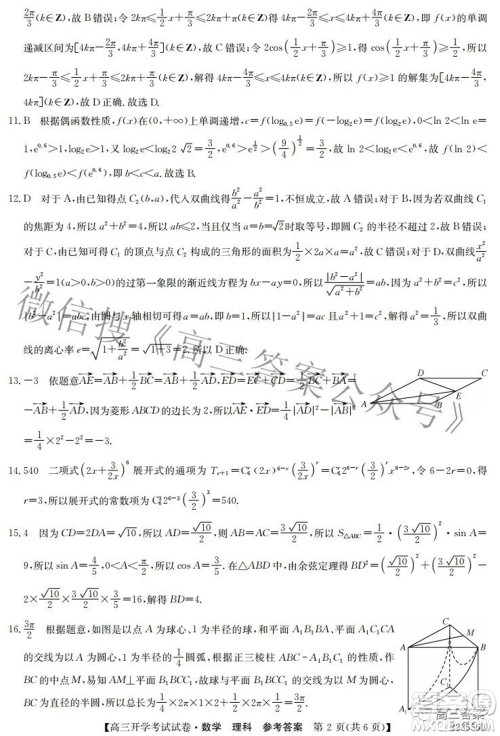 2π/3(k∈Z),故B错误;令2kπ≤1/2x+π/3≤2kπ+π(k∈Z)得4kπ-2π/3≤x≤4kπ+4π/3(k∈Z),即f(x)的单调
递减区间为[4kπ-2π/3,4kπ+4π/3](k∈Z),故C错误;令2cos(1/2x+π/3)≥1,得cos(1/2x+π/3)≥1/2,所以
2kπ-π/3≤1/2x+π/3≤2kπ+π/3(k∈Z),解得4kπ-4π/3≤x≤4kπ(k∈Z),所以f(x)≥1的解集为[4kπ-4π/3,
4kπ](k∈Z),故D正确.故选D.
11.B 根据偶函数性质,f(x)在(0,+∞)上单调递增,c=f(log₀.₅e)=f(-log₂e)=f(log₂e),0<ln 2<ln e=
1,e^0.6>1,log₂e>1,又log₂e<log₂2√2=3/2,e^0.6>e^(1/2)>(9/4)^(1/2)=3/2,故ln 2<log₂e<e^0.6,故f(ln 2)<
f(log₂e)<f(e^0.6),即b<c<a.故选B.
12.D 对于A,由已知得点C₂(b,a),代入双曲线得b²/a²-a²/b²=1,不恒成立,故A错误;对于B,因为若双曲线C₁
的焦距为4,所以a²+b²=4,所以ab≤2,当且仅当a=b=√2时取等号,即圆C₂的半径不超过2,故B错误;
对于C,由已知可得C₁的顶点与点C₂构成的三角形的面积为1/2×2a×a=a²,故C错误;对于D,双曲线x²/a²
-y²/b²=1(a>0,b>0)的过第一象限的渐近线方程为bx-ay=0,所以|b²-a²|/√(a²+b²)=ab,因为a²+b²=c²,所以
|b²-a²|=abc,由圆与x轴相切可得a=ab,即b=1,所以|1-a²|=ac且a²+1=c²,解得a²=1/3,所以双曲
线的离心率e=√(1+b²/a²)=√(1+3)=2,所以D正确.
13.-3 依题意AE=AB+1/2BC=AB+1/2AD,ED=EC+CD=1/2BC+BA=
-AB+1/2AD,因为菱形ABCD的边长为2,所以AE·ED=1/4|AD|²-|AB|²
=1/4×2²-2²=-3.
D
C
E
A
B
14.540 二项式(2x+3/2x)⁶展开式的通项为Tᵣ₊₁=C₆ʳ(2x)^(6-r)(3/2x)^r=C₆ʳ2^(6-r)(3/2)^r x^(6-2r),令6-2r=0,得
r=3,所以展开式的常数项为C₆³2^(6-3)(3/2)³=540.
15.4 因为CD=2DA=√10,所以AD=√10/2,则AB=AC=3√10/2,所以S△ABC=1/2·(3√10/2)²·sin A=
9,所以sin A=4/5,0<A<π/2,所以sin A=3/5.在△ABD中,由余弦定理得BD²=(√10/2)²+(3√10/2)²-
2×√10/2×3√10/2×3/5=16,解得BD=4.
16.3π/2 根据题意,如图是以点A为球心、1为半径的球,和平面A₁B₁BA、平面A₁C₁CA
的交线为以A为圆心,1为半径的1/4圆弧,根据正三棱柱ABC-A₁B₁C₁的性质,作
BC的中点M,易知AM⊥平面B₁BCC₁,所以球和平面B₁BCC₁的交线为以M为圆心,
BC为直径的半圆,所以总长为1/4×2π×1×2+1/2×2π×1/2=3π/2.
【高三开学考试试卷·数学 理科 参考答案 第2页(共6页)】
微信搜《高三答案公众号》